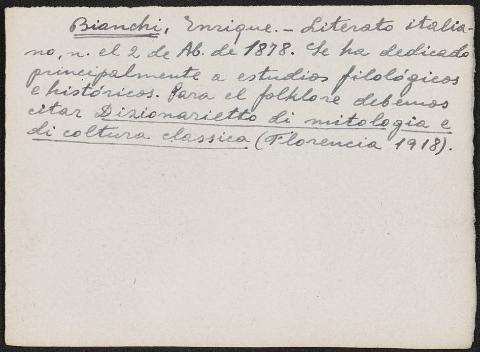 Bianchi, Enrique. - Literato italia-
no, n. el 2 de Ab. de 1878. Se ha dedicado
principalmente a estudios filológicos
e históricos. Para el folklore debemos
citar Dizionarietto di mitologia e
di coltura classica (Florencia 1918).